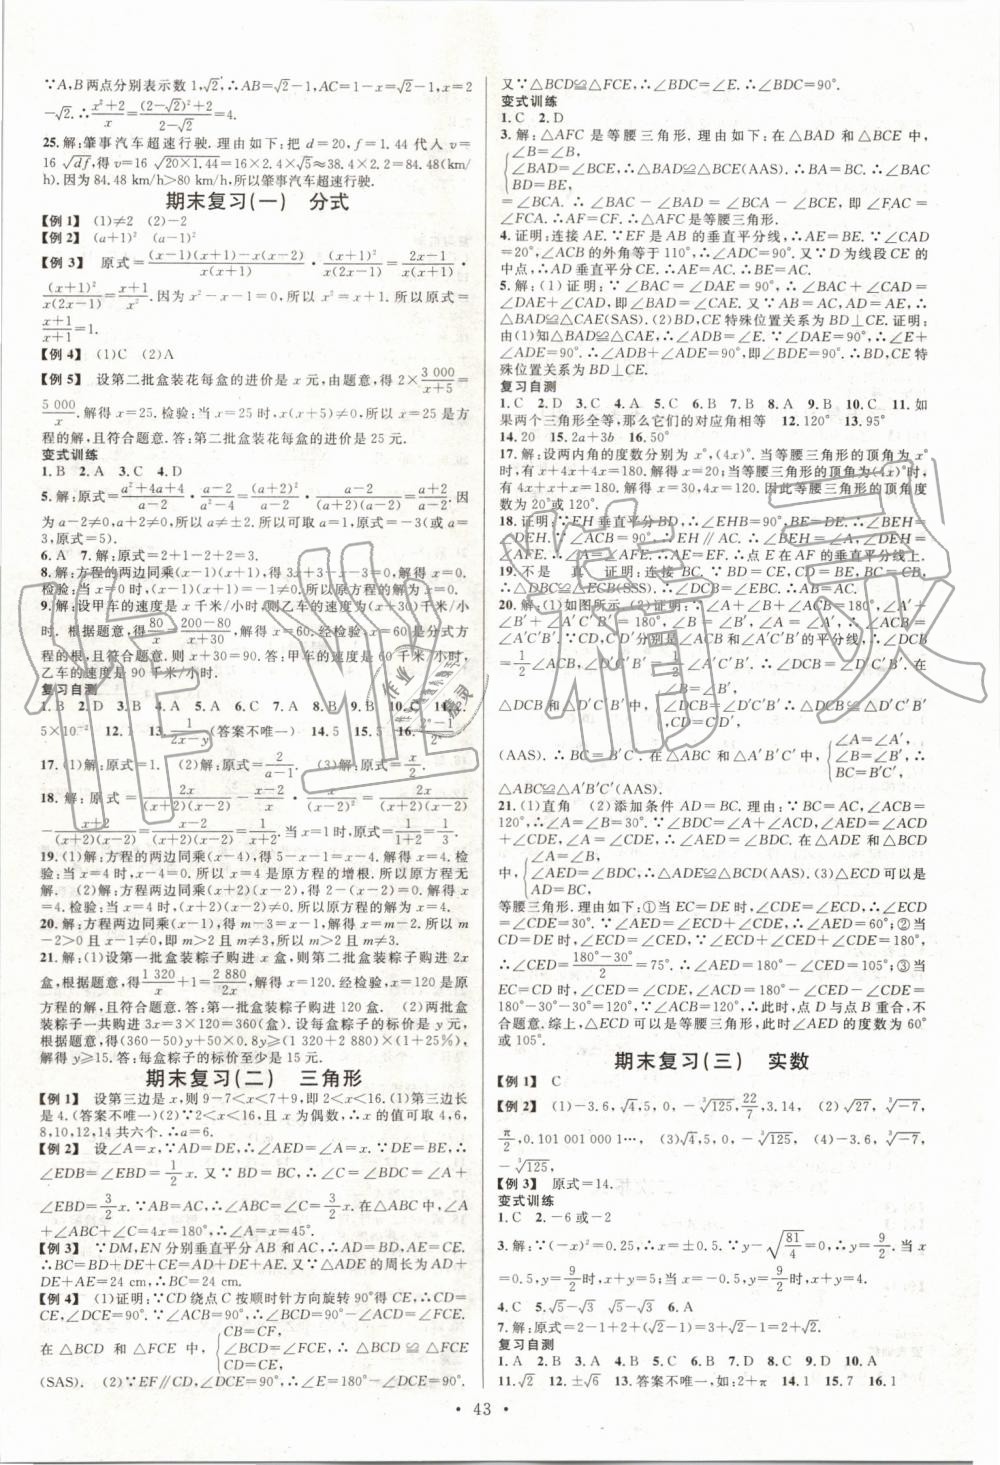 ∵A,B两点分别表示数1,√2,∴AB=√2-1,AC=1-x,∴x=2
-√2.∴(x²+2)/x=((2-√2)²+2)/(2-√2)=4.
25.解:肇事汽车超速行驶.理由如下:把d=20,f=1.44代入v=
16√df,得v=16√20×1.44=16×2.4×√5≈38.4×2.2=84.48(km/
h).因为84.48 km/h>80 km/h,所以肇事汽车超速行驶.
期末复习(一) 分式
【例1】 (1)≠2 (2)-2
【例2】 (a+1)² (a-1)²
【例3】 原式=((x-1)(x+1)-x(x-2))/(x(x+1))·(x+1)²/(x(2x-1))=(2x-1)/(x(x+1))·
(x+1)²/(x(2x-1))=(x+1)/x².因为x²-x-1=0,所以x²=x+1.所以原式=
(x+1)/(x+1)=1.
【例4】 (1)C (2)A
【例5】 设第二批盒装花每盒的进价是x元,由题意,得2×3 000/(x+5)=
5 000/x.解得x=25.检验:当x=25时,x(x+5)≠0,所以x=25是方
程的解,且符合题意.答:第二批盒装花每盒的进价是25元.
变式训练
1.B 2.A 3.C 4.D
5.解:原式=(a²+4a+4)/(a-2)·(a-2)/(a²-4)=(a+2)²/(a-2)·(a-2)/((a+2)(a-2))=(a+2)/(a-2).因
为a-2≠0,a+2≠0,所以a≠±2.所以可取a=1,原式=-3(或a
=3,原式=5).
6.A 7.解:原式=2+1-2+2=3.
8.解:方程的两边同乘(x-1)(x+1),得3x+3-x-3=0.解得x=0.
检验:当x=0时,(x-1)(x+1)≠0.所以原方程的解为x=0.
9.解:设甲车的速度是x千米/小时,则乙车的速度为(x+30)千米/小
时.根据题意,得80/x=(200-80)/(x+30).解得x=60.经检验,x=60是分式方
程的根,且符合题意.则x+30=90.答:甲车的速度是60千米/小时,
乙车的速度是90千米/小时.
复习自测
1.B 2.D 3.B 4.A 5.A 6.C 7.D 8.B 9.B 10.C 11.2.
5×10⁻² 12.1 13.1/(2x-y)(答案不唯一) 14.5 15.5
17.(1)解:原式=1. (2)解:原式=2/(a-1). (3)解:原式=
18.解:原式=2x/((x+2)(x-2))-x/(x-2)·
=2x/((x+2)(x-2))-x/((x+2)(x-2))=x/((x+2)(x-2))
19.(1)解:方程的两边同乘(x-4),得5-x-1=x-4.解得x=4.检
验:当x=4时,x-4=0,所以x=4是原方程的增根.所以原方程无
解. (2)解:方程的两边同乘(x+2)(x-2),得
=4.检验:当x=4时,(x+2)(x-2)≠0,所以原方程的解为x=4.
20.解:方程两边同乘(x-1),得m-3=x-1,解得x=m-2.所以m
-2>0且m-2≠1,即m>2且m≠3,所以m>2且m≠3.
21.解:(1)设第一批盒装粽子购进x盒,则第二批盒装粽子购进2x
盒,根据题意,得1 320/x+10=2 880/2x.解得x=120.经检验,x=120是
原方程的解,且符合题意.答:第一批盒装粽子购进120盒. (2)两批盒
装粽子一共购进3x=3×120=360(盒).设每盒粽子的标价是y元,
根据题意,得(360-50)y+50×0.8y≥(1 320+2 880)×(1+25%),
解得y≥15.答:每盒粽子的标价至少是15元.
期末复习(二) 三角形
【例1】 设第三边是x,则9-7<x<9+7,即2<x<16.(1)第三边长
是4.(答案不唯一)(2)∵2<x<16,x为偶数,∴x的值可取4,6,
8,10,12,14共六个.∴a=6.
【例2】 设∠A=x.∵AD=DE,∴∠AED=∠A=x.∵DE=BE,∴
∠EDB=∠EBD=1/2x.又∵BD=BC,∴∠C=∠BDC=∠A+
∠EBD=3/2x.∵AB=AC,∴∠ABC=∠C=3/2x.在△ABC中,∠A
+∠ABC+∠C=4x=180°,∴x=45°.∴∠A=45°.
【例3】 ∵DM,EN分别垂直平分AB和AC,∴AD=BD,AE=EC.
∴BC=BD+DE+CE=AD+DE+AE.又∵△ADE的周长为AD+
DE+AE=24 cm,∴BC=24 cm.
【例4】 (1)证明:∵CD绕点C按顺时针方向旋转90°得CE,∴CD=
CE,∠DCE=90°.∵∠ACB=90°,∴∠BCD=90°-∠ACD=∠FCE.
在△BCD和△FCE中,{CB=CF,∠BCD=∠FCE,CD=CE,∴△BCD≌△FCE
(SAS). (2)∵EF∥CD,∴∠E=180°-∠DCE=90°.
又∵△BCD≌△FCE,∴∠BDC=∠E,∴∠BDC=90°.
变式训练
1.C 2.D
3.解:△AFC是等腰三角形.理由如下:在△BAD和△BCE中,
{∠B=∠B,∠BAD=∠BCE,BD=BE,∴△BAD≌△BCE(AAS).∴BA=BC.∴∠BAC
=∠BCA.∴∠BAC-∠BAD=∠BCA-∠BCE,即∠FAC=
∠FCA.∴AF=CF.∴△AFC是等腰三角形.
4.证明:连接AE.∵EF是AB的垂直平分线,∴BE=AE.∵∠CAD
=20°,∠ACB的外角等于110°,∴∠ACD=70°.又∵D为线段CE的
中点,∴AD垂直平分CE.∴AC=AE.∴BE=AC.
5.解:(1)证明:∵∠BAC=∠DAE=90°,∴∠BAC+∠CAD=
∠DAE+∠CAD,即∠BAD=∠CAE.又∵AB=AC,AD=AE,∴
△BAD≌△CAE(SAS).(2)BD,CE特殊位置关系为BD⊥CE.证明:
由(1)知△BAD≌△CAE,∴∠ADB=∠E.∵∠DAE=90°,∴∠E+
∠ADE=90°.∴∠ADB+∠ADE=90°.即∠BDE=90°.∴BD,CE特
殊位置关系为BD⊥CE.
复习自测
1.C 2.D 3.C 4.A 5.C 6.B 7.B 8.A 9.B 10.C 11.如
果两个三角形全等,那么它们的对应角相等 12.120° 13.95°
14.20 15.2a+3b 16.50°
17.解:设两内角的度数分别为x°,(4x)°.当等腰三角形的顶角为x°
时,有x+4x+4x=180.解得x=20;当等腰三角形的顶角为(4x)°时,
有4x+x+x=180.解得x=30,4x=120.因此等腰三角形的顶角度
数为20°或120°.
18.证明:∵EH垂直平分BD,∴∠EHB=90°,BE=DE.∴∠BEH=
∠DEH.∵∠ACB=90°,∴EH∥AC.∴∠BEH=∠A,∠DEH=
∠AFE.∴∠A=∠AFE.∴EA=EF.∴点E在AF的垂直平分线上.
19.不是 真 证明:连接BC.∵BD=CD
20.解:(1)如图所示.(2)证明:∵∠ACB+∠A+∠B=180°,∠A′+
∠B′+∠A′C′B′=180°,∠A=∠A′,∠B=∠B′,∴∠ACB=
∠A′C′B′.∵CD,C′D′分别是∠ACB和∠A′C′B′的平分线,∴∠DCB=
1/2∠ACB,∠D′C′B′=1/2∠A′C′B′.∴∠DCB=∠D′C′B′.在
△DCB和△D′C′B′中
(AAS).∴BC=B′C′.在△ABC和△A′B′C′中,{∠A=∠A′,∠B=∠B′,BC=B′C′,
△ABC≌△A′B′C′(AAS).
21.(1)直角 (2)添加条件AD=BC.理由:∵AC=BC,∠ACB=
120°,∴∠A=∠B=30°.∵∠ADC=∠B+∠BCD,∠AED=∠ACD
+∠CDE,∠A=∠CDE,∴∠BCD=∠AED.在△ADE和△BCD
中,{∠A=∠B,∠AED=∠BCD,AD=BC,∴△ADE≌△BCD(AAS).(3)△ECD可以是
等腰三角形.理由如下:①当EC=DE时,∠CDE=∠ECD=30°.∴
∠CDE=30°.∵∠AED=∠ECD+∠CDE,∴∠AED=60°;②当
CD=DE时,∠ECD=∠CED.∵∠ECD+∠CED+∠CDE=180°,
∴∠CED=(180°-30°)/2=75°.∴∠AED=180°-∠CED=105°;③当
EC=CD时,∠CED=∠CDE=30°.∠ECD=180°-∠CED-∠CDE=
180°-30°-30°=120°.∵∠ACB=120°,∴此时,点D与点B重合,不
合题意.综上,△ECD可以是等腰三角形,此时∠AED的度数为60°
或105°.
期末复习(三) 实数
【例1】 C
【例2】 (1)-3.6,√4,5,0,-∛125,22/7,3.14, (2)√27,∛-7,
π/2,0.101 001 000 1…, (3)√4,5,0,-∛125, (4)-3.6,∛-7,
-∛125,
【例3】 原式=14.
变式训练
1.C 2.-6或-2
3.解:∵(-x)²=0.25,∴x=±0.5.∵y-√(81/4)=0,∴y=9/2.当x
=0.5,y=9/2时,x+y=5;当x=-0.5,y=9/2时,x+y=4.
4.C 5.√5-√3 √5-√3 6.A
7.解:原式=2-1+2+(√2-1)=3+√2-1=2+√2.
复习自测
1.A 2.B 3.B 4.D 5.D 6.B 7.C 8.C 9.D 10.A
11.√2 12.±√6 13.答案不唯一,如:2+π 14.1 15.7 16.1
· 43 ·